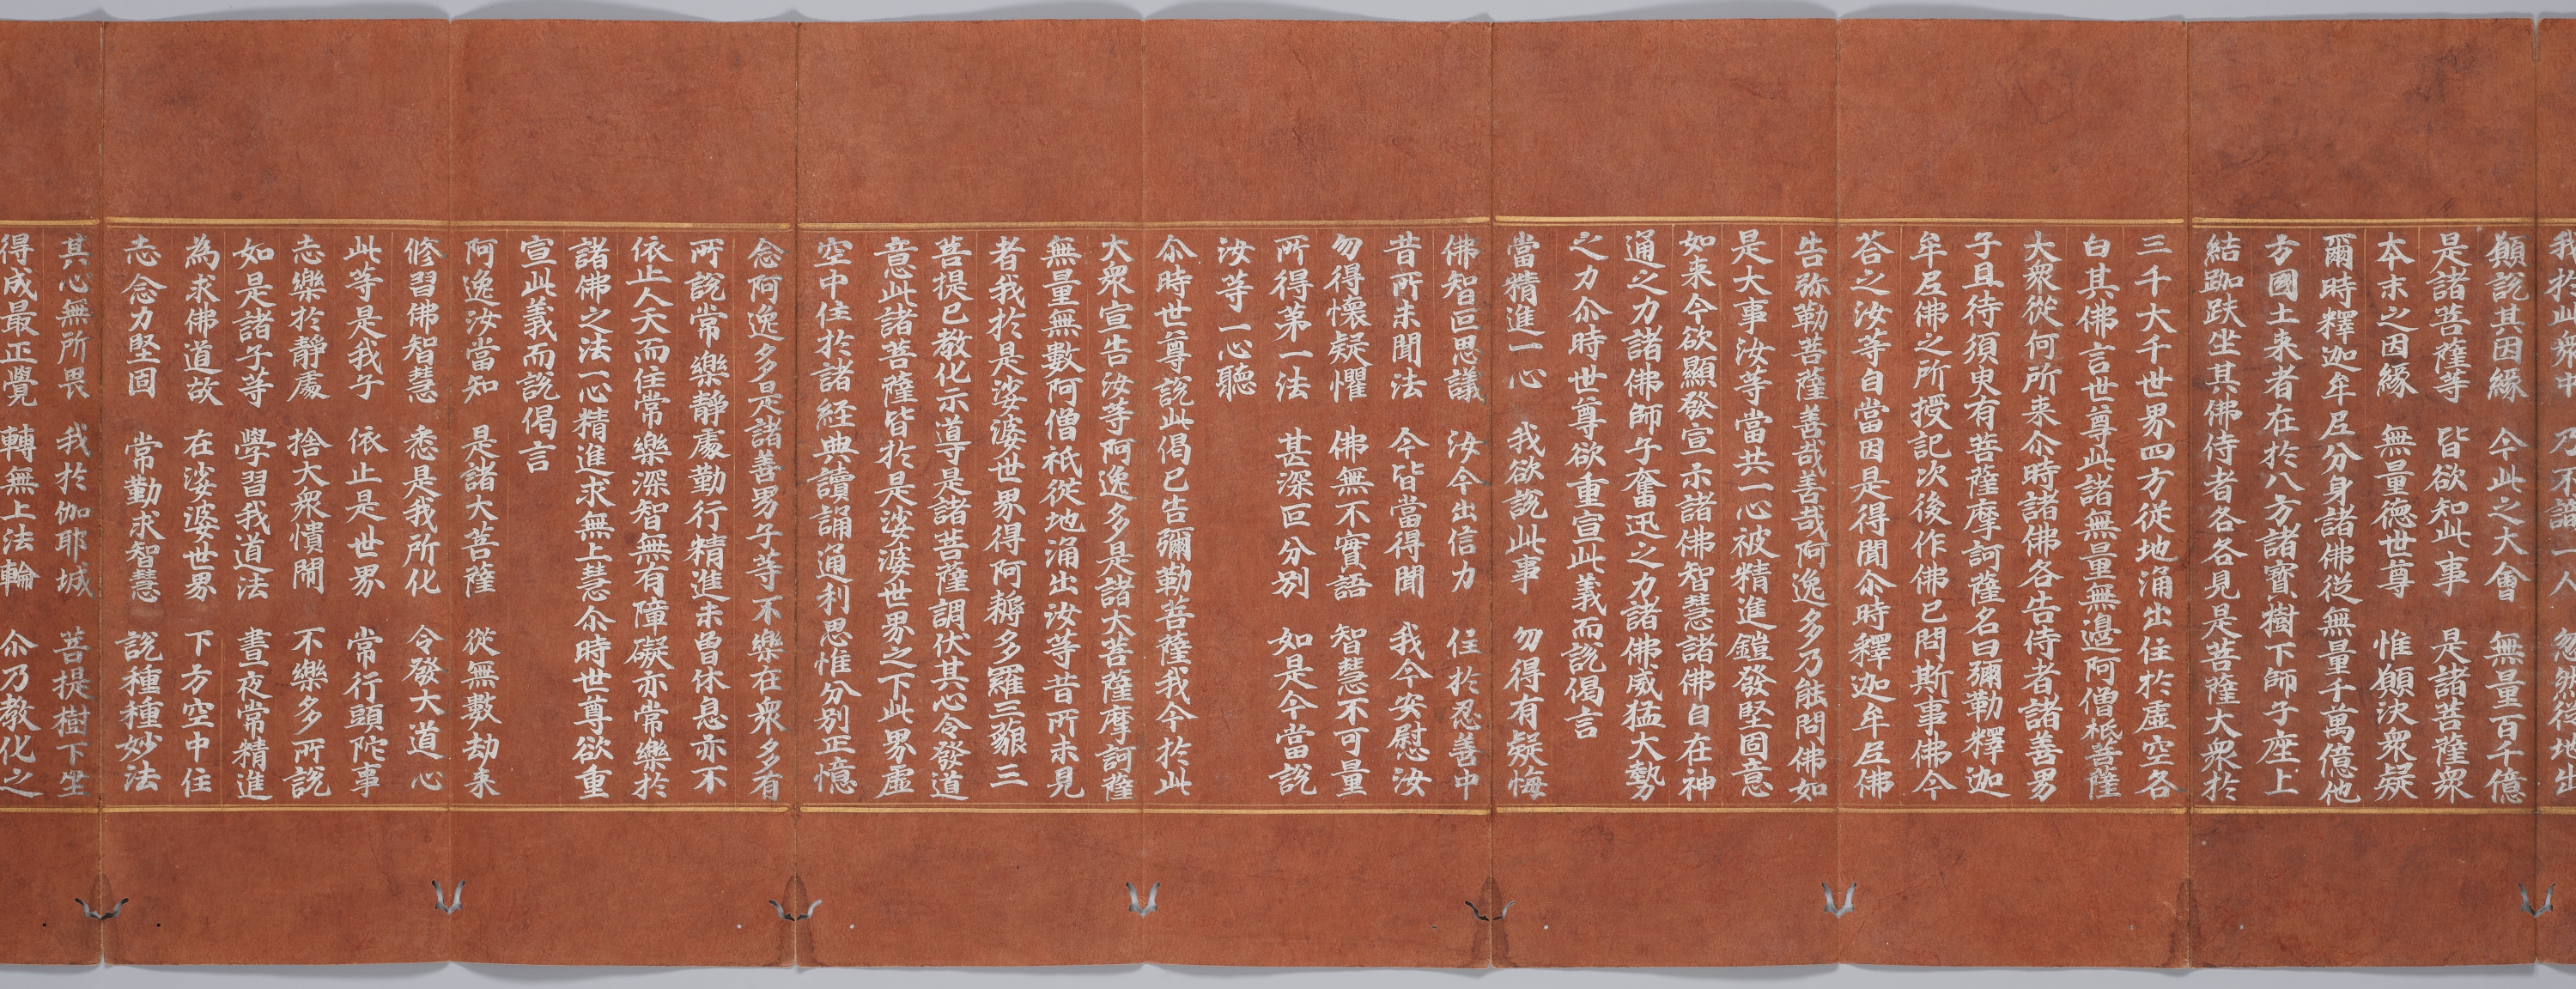 我於此衆中　乃不識一人　忽然從地出
願說其因緣　今此之大會　無量百千億
是諸菩薩等　皆欲知此事　是諸菩薩衆
本末之因緣　無量德世尊　惟願決衆疑
爾時釋迦牟尼分身諸佛從無量千萬億他
方國土来者在於八方諸寶樹下師子座上
結跏趺坐其佛侍者各各見是菩薩大衆於
三千大千世界四方從地涌出住於虛空各
白其佛言世尊此諸無量無邊阿僧祇菩薩
大衆從何所来尒時諸佛各告侍者諸善男
子且待須臾有菩薩摩訶薩名曰彌勒釋迦
牟尼佛之所授記次後作佛已問斯事佛今
荅之汝等自當因是得聞尒時釋迦牟尼佛
告弥勒菩薩善哉善哉阿逸多乃能問佛如
是大事汝等當共一心被精進鎧發堅固意
如来今欲顯發宣示諸佛智慧諸佛自在神
通之力諸佛師子奮迅之力諸佛威猛大勢
之力尒時世尊欲重宣此義而說偈言
當精進一心　我欲說此事　勿得有疑悔
佛智叵思議　汝今出信力　住於忍善中
昔所未聞法　今皆當得聞　我今安慰汝
勿得懷疑懼　佛無不實語　智慧不可量
所得第一法　甚深叵分別　如是今當說
汝等一心聽
尒時世尊說此偈已告彌勒菩薩我今於此
大衆宣告汝等阿逸多是諸大菩薩摩訶薩
無量無數阿僧祇從地涌出汝等昔所未見
者我於是娑婆世界得阿耨多羅三藐三
菩提已教化示導是諸菩薩調伏其心令發道
意此諸菩薩皆於是娑婆世界之下此界虛
空中住於諸経典讀誦通利思惟分別正憶
念阿逸多是諸善男子等不樂在衆多有
所說常樂靜處勤行精進未曾休息亦不
依止人天而住常樂深智無有障礙亦常樂於
諸佛之法一心精進求無上慧尒時世尊欲重
宣此義而說偈言
阿逸汝當知　是諸大菩薩　從無數劫来
修習佛智慧　悉是我所化　令發大道心
此等是我子　依止是世界　常行頭陀事
志樂於靜處　捨大衆憒閙　不樂多所說
如是諸子等　學習我道法　晝夜常精進
為求佛道故　在娑婆世界　下方空中住
志念力堅固　常勤求智慧　說種種妙法
其心無所畏　我於伽耶城　菩提樹下坐
得成最正覺　轉無上法輪　尒乃教化之